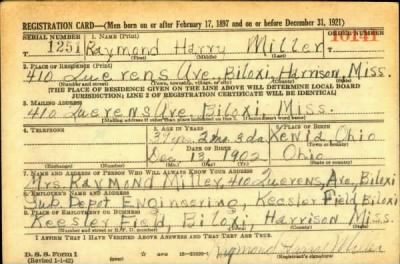 REGISTRATION CARD—(Men born on or after February 17, 1897 and on or before December 31, 1921)
SERIAL NUMBER 1. NAME (Print) ORDER NUMBER
1251 Raymond Harry Miller
(First) (Middle) (Last)
2. PLACE OF RESIDENCE (Print)
410 Querens Ave, Biloxi, Harrison, Miss.
(Number and street) (Town, township, village, or city) (County) (State)
[THE PLACE OF RESIDENCE GIVEN ON THE LINE ABOVE WILL DETERMINE LOCAL BOARD
JURISDICTION; LINE 2 OF REGISTRATION CERTIFICATE WILL BE IDENTICAL]
3. MAILING ADDRESS
410 Querens Ave Biloxi, Miss.
4. TELEPHONE 5. AGE IN YEARS 6. PLACE OF BIRTH
Ohio
DATE OF BIRTH
Dec 13, 1902 Ohio
(Exchange) (Number) (Mo.) (Day) (Yr.) (State or country)
7. NAME AND ADDRESS OF PERSON WHO WILL ALWAYS KNOW YOUR ADDRESS
Mrs. Raymond Miller 410 Querens, Ave, Biloxi
8. EMPLOYER'S NAME AND ADDRESS
Sub. Depot Engineering, Keesler Field, Biloxi
9. PLACE OF EMPLOYMENT OR BUSINESS
Keesler Field, Biloxi, Harrison Miss.
(Number and street or R. F. D. number) (Town) (County) (State)
I AFFIRM THAT I HAVE VERIFIED ABOVE ANSWERS AND THAT THEY ARE TRUE.
D. S. S. Form 1
(Revised 1-1-42) (over) Raymond Harry Miller
(Registrant's signature)